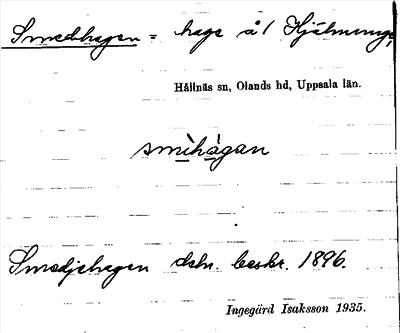 Smedhagen = hage å/ Hjälmunge,
Hållnäs sn, Olands hd, Uppsala län.
smìhàgan
Smedjehagen dsbn. beskr. 1896.
Ingegärd Isaksson 1935.